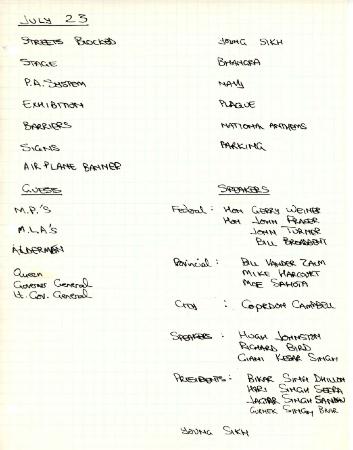 JULY 23
STREETS BLOCKED
STAGE
P.A. SYSTEM
EXHIBITION
BARRIERS
SIGNS
AIR PLANE BANNER
YOUNG SIKH
BHANGRA
NAVY
PLAQUE
NATIONAL ANTHEMS
PARKING
GUESTS
M.P.'S
M.L.A'S
ALDERMAN
Queen
Governor General
Lt. Gov. General
SPEAKERS
Federal : HON GERRY WEINER
HON JOHN FRASER
JOHN TURNER
BILL BROADBENT
Provincial : BILL VANDER ZALM
MIKE HARCOURT
MOE SAHOTA
CITY : GORDON CAMPBELL
SPEAKERS : HUGH JOHNSTON
RICHARD BIRD
GIANI KESAR SINGH
PRESIDENTS : BIKAR SINGH DHILLON
HARI SINGH
JAGTAR SINGH SANDHU
SINGH
YOUNG SIKH